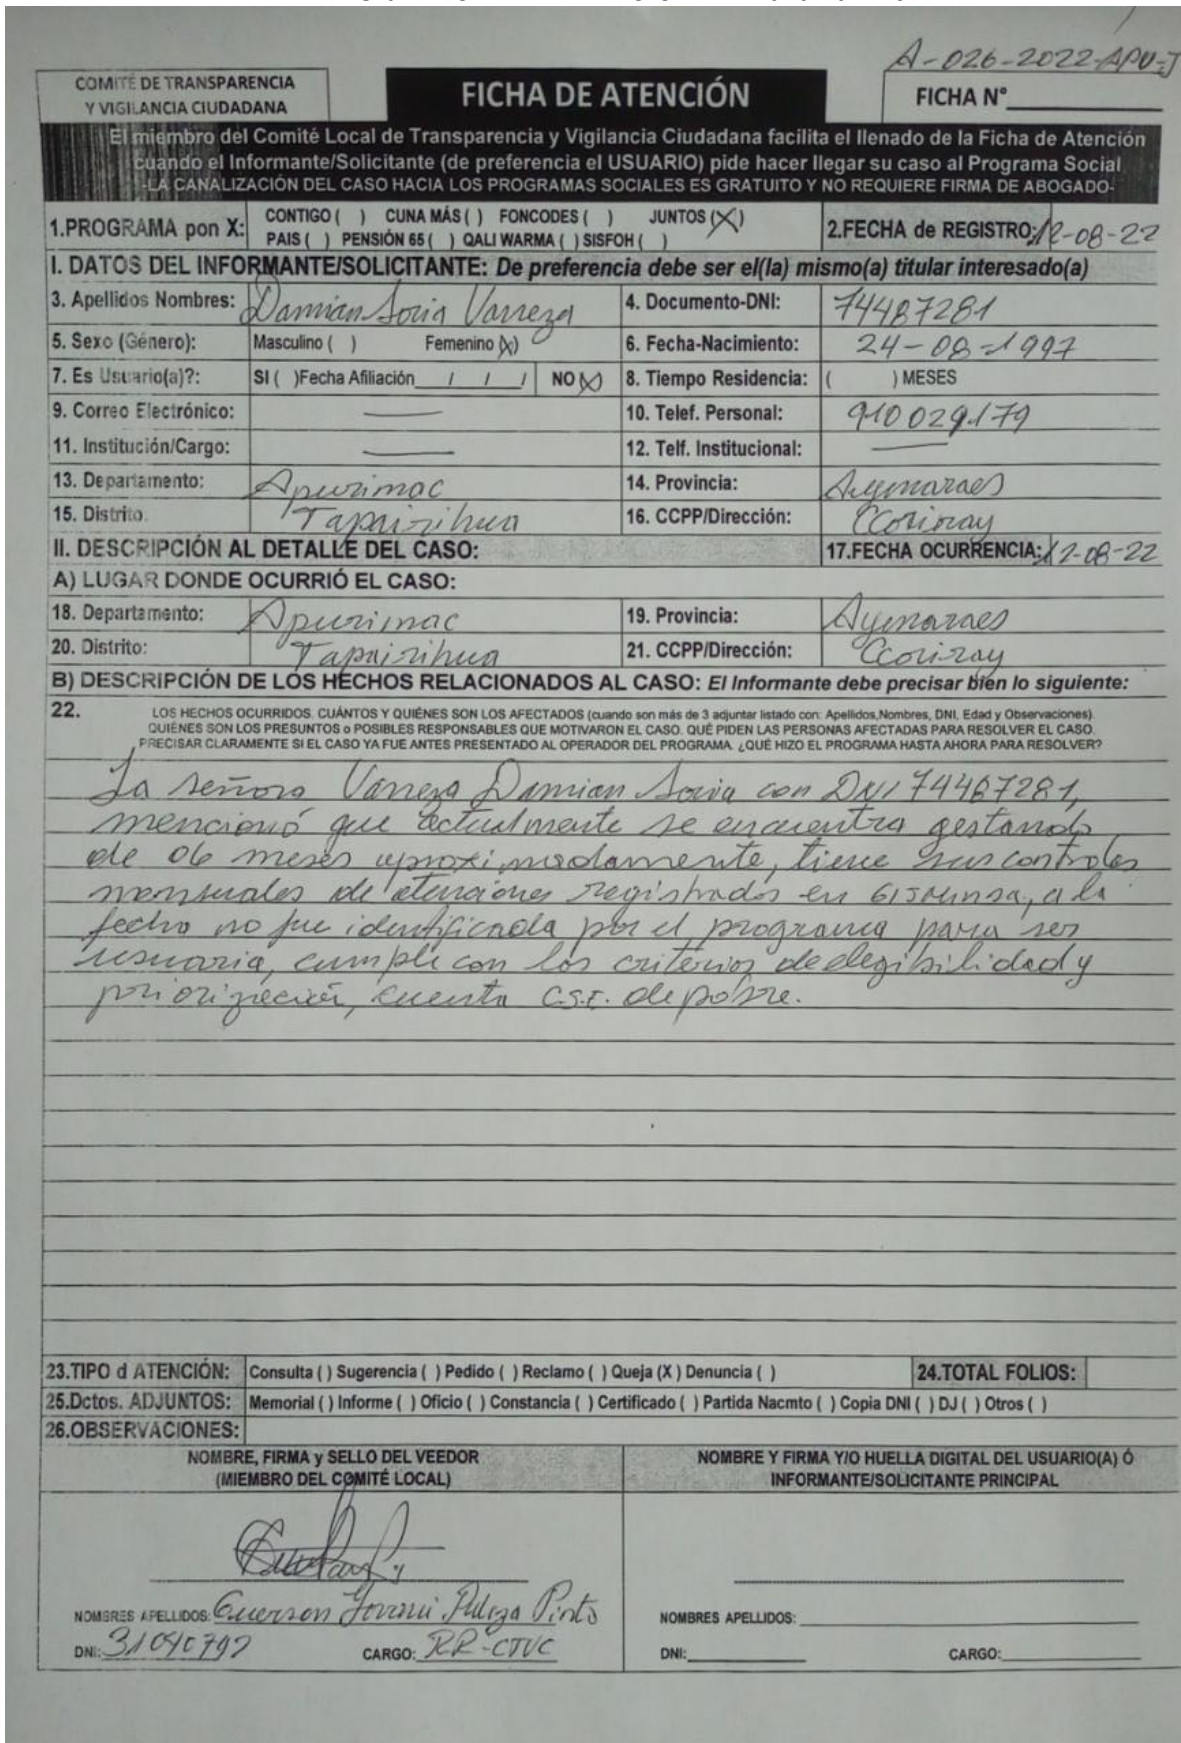 A-026-2022-APU-J
COMITÉ DE TRANSPARENCIA
Y VIGILANCIA CIUDADANA
FICHA DE ATENCIÓN
FICHA N°
El miembro del Comité Local de Transparencia y Vigilancia Ciudadana facilita el llenado de la Ficha de Atención
cuando el Informante/Solicitante (de preferencia el USUARIO) pide hacer llegar su caso al Programa Social
-LA CANALIZACIÓN DEL CASO HACIA LOS PROGRAMAS SOCIALES ES GRATUITO Y NO REQUIERE FIRMA DE ABOGADO-
1.PROGRAMA pon X: CONTIGO ( ) CUNA MÁS ( ) FONCODES ( ) JUNTOS (X)
PAIS ( ) PENSIÓN 65 ( ) QALI WARMA ( ) SISFOH ( )
2.FECHA de REGISTRO: 12-08-22
I. DATOS DEL INFORMANTE/SOLICITANTE: De preferencia debe ser el(la) mismo(a) titular interesado(a)
3. Apellidos Nombres: Damian Soria Vanreza 4. Documento-DNI: 74487281
5. Sexo (Género): Masculino ( ) Femenino (X) 6. Fecha-Nacimiento: 24-08-1997
7. Es Usuario(a)?: SI ( )Fecha Afiliación / / / NO (X) 8. Tiempo Residencia: ( ) MESES
9. Correo Electrónico: — 10. Telef. Personal: 910029179
11. Institución/Cargo: — 12. Telf. Institucional: —
13. Departamento: Apurimac 14. Provincia: Aymaraes
15. Distrito: Tapairihua 16. CCPP/Dirección: Ccoriray
II. DESCRIPCIÓN AL DETALLE DEL CASO: 17.FECHA OCURRENCIA: 12-08-22
A) LUGAR DONDE OCURRIÓ EL CASO:
18. Departamento: Apurimac 19. Provincia: Aymaraes
20. Distrito: Tapairihua 21. CCPP/Dirección: Ccoriray
B) DESCRIPCIÓN DE LOS HECHOS RELACIONADOS AL CASO: El Informante debe precisar bien lo siguiente:
22. LOS HECHOS OCURRIDOS. CUÁNTOS Y QUIÉNES SON LOS AFECTADOS (cuando son más de 3 adjuntar listado con: Apellidos,Nombres, DNI, Edad y Observaciones).
QUIÉNES SON LOS PRESUNTOS o POSIBLES RESPONSABLES QUE MOTIVARON EL CASO. QUÉ PIDEN LAS PERSONAS AFECTADAS PARA RESOLVER EL CASO.
PRECISAR CLARAMENTE SI EL CASO YA FUE ANTES PRESENTADO AL OPERADOR DEL PROGRAMA. ¿QUÉ HIZO EL PROGRAMA HASTA AHORA PARA RESOLVER?
La señora Vanreza Damian Soria con DNI 74487281,
mencionó que actualmente se encuentra gestando
de 06 meses aproximadamente, tiene sus controles
mensuales de atenciones registrados en la
fecha no fue identificada por el programa para ser
usuaria, cumple con los criterios de elegibilidad y
priorización, cuenta C.S.E. de pobre.
23.TIPO d ATENCIÓN: Consulta ( ) Sugerencia ( ) Pedido ( ) Reclamo ( ) Queja (X ) Denuncia ( ) 24.TOTAL FOLIOS:
25.Dctos. ADJUNTOS: Memorial ( ) Informe ( ) Oficio ( ) Constancia ( ) Certificado ( ) Partida Nacmto ( ) Copia DNI ( ) DJ ( ) Otros ( )
26.OBSERVACIONES:
NOMBRE, FIRMA y SELLO DEL VEEDOR
(MIEMBRO DEL COMITÉ LOCAL)
NOMBRE Y FIRMA Y/O HUELLA DIGITAL DEL USUARIO(A) Ó
INFORMANTE/SOLICITANTE PRINCIPAL
NOMBRES APELLIDOS: Pinto
DNI: 31040792 CARGO: RR-CTVC
NOMBRES APELLIDOS:
DNI: CARGO: